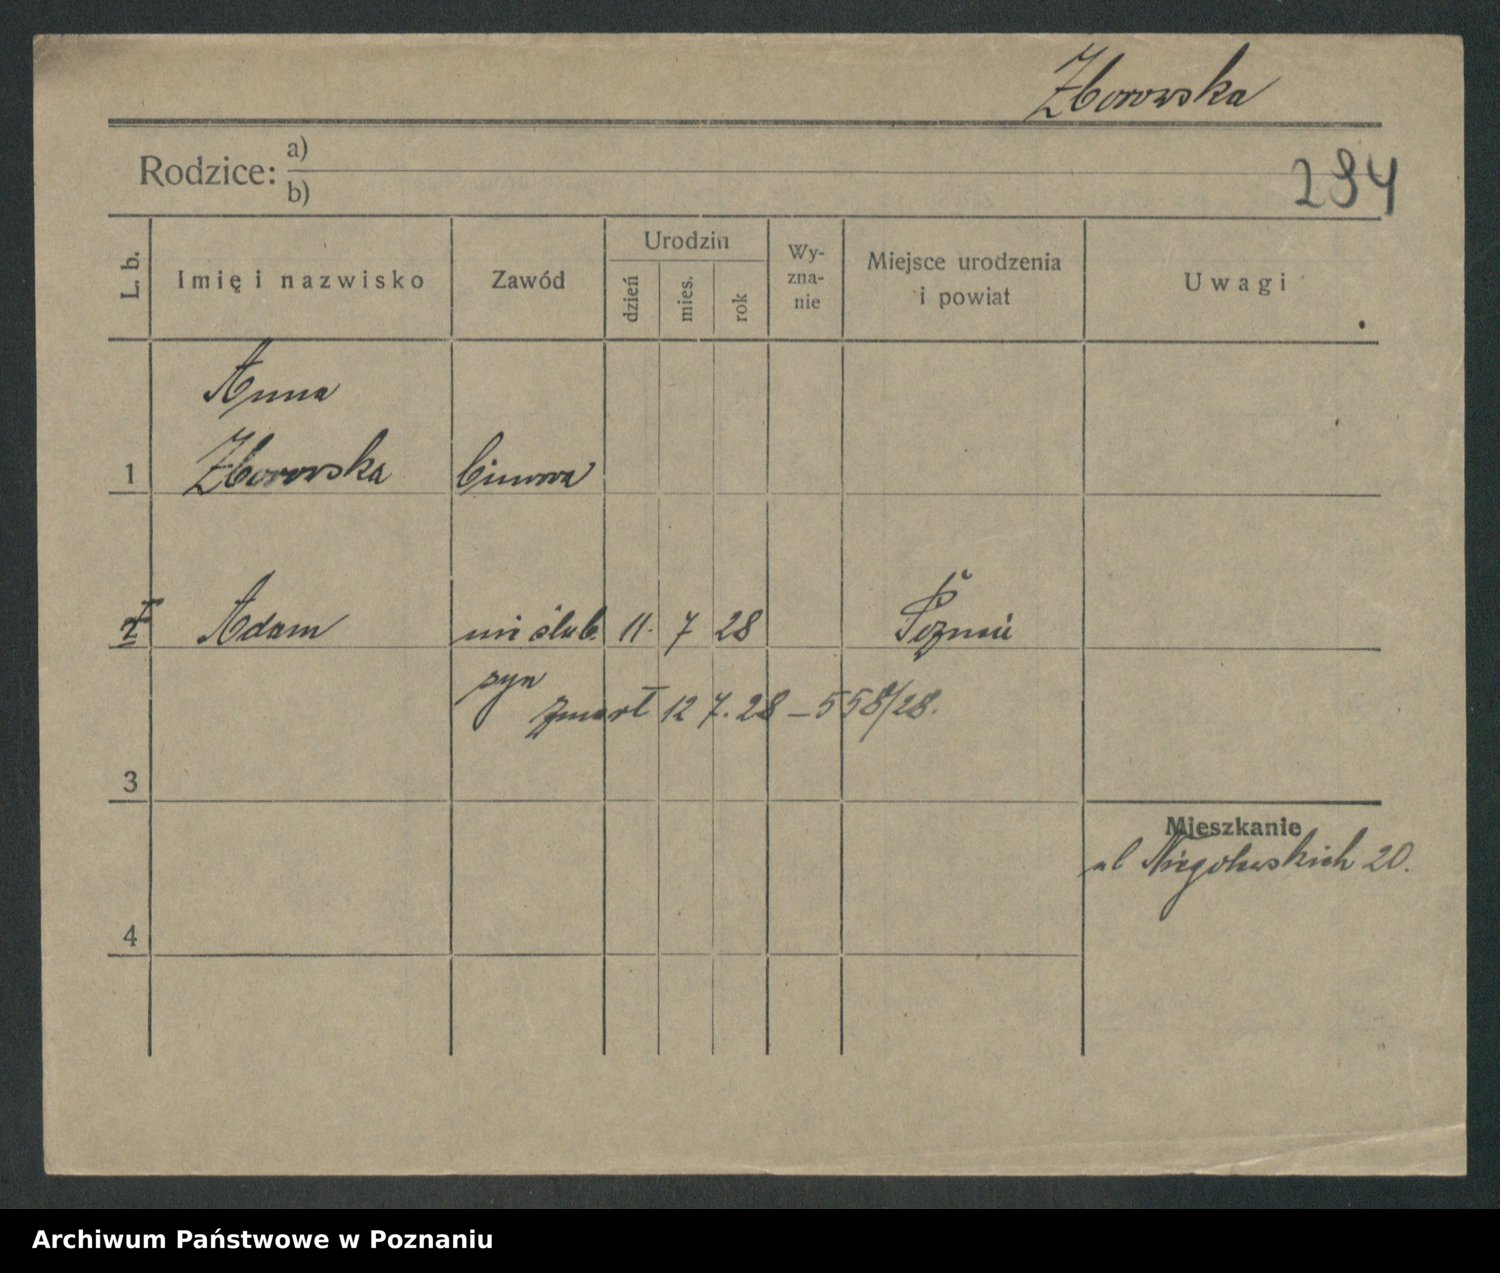 Zborowska
Rodzice: a)
b)
294
L. b.
Imię i nazwisko
Zawód
Urodzin
dzień
mies.
rok
Wy-
zna-
nie
Miejsce urodzenia
i powiat
Uwagi
Anna
1 Zborowska
2 Adam nieślub. 11. 7 28 Poznań
syn
zmarł 12 7. 28 – 558/28.
3
Mieszkanie
ul Niegolewskich 20.
4
Archiwum Państwowe w Poznaniu